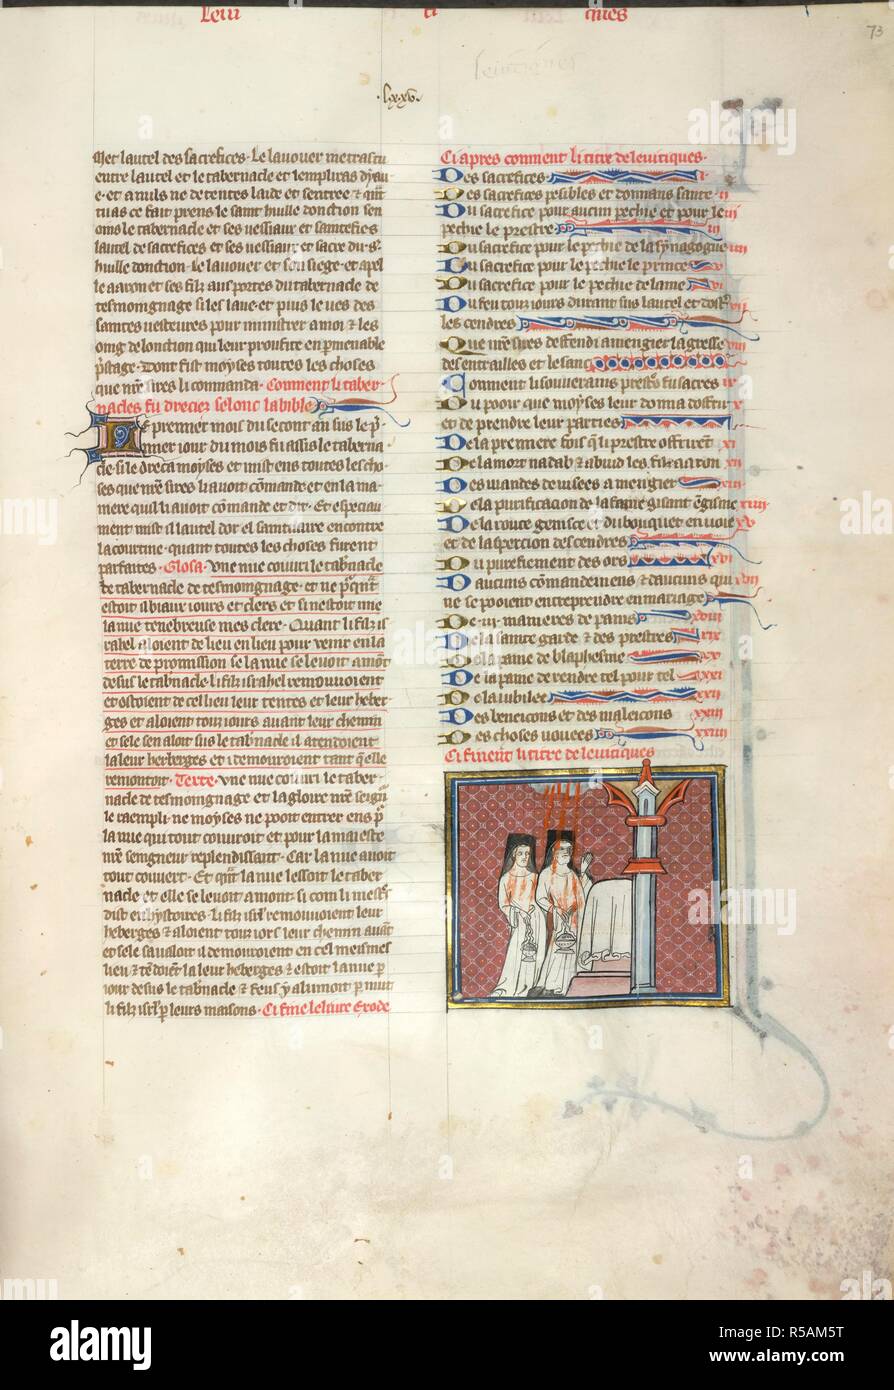 Leui ti ques
73
.lxxv.
Met lautel des sacrefices. Le lauouer metras tu
entre lautel et le tabernacle et lempliras dyau
e. et auras ne de tentes
tu as ce fait prens le saint huille donction si en
oins le tabernacle et ses uessiaux et saintefie
lautel de sacrefices et ses uessiaux et sacre du s
huille donction. Le lauouer et son siege. et apel
le aaron et ses filz aus portes du tabernacle de
tesmoingnage si les laue. et puis le ues des
saintes uesteures pour ministrer a moi et les
oing de lonction qui leur proufite en pmenable
pstage. Dont fist moyses toutes les choses
que nre sires li commanda. Comment li taber
nacles fu dreciez selonc la bible
premier mois du secont an sus le p
mier iour du mois fu assis le taberna
cle. si le dreca moyses et mist ens toutes les cho
ses que nre sires li auoit comande et en la ma
nere quil li auoit comande et dit. Et especiau
ment mist il lautel dor el saintuaire encontre
la courtine. quant toutes les choses furent
parfaites. Glosa. Vne nue couuri le tabnacle
de tabernacle de tesmoingnage. et ne
estoit abiaux iours et clers et si nestoit mie
la nue tenebreuse mes clere. Quant li filz is
rahel aloient de lieu en lieu pour uenir en la
terre de promission se la nue se leuoit amont
desus le tabnacle li filz israhel remouuoient
et ostoient de cel lieu leur tentes et leur heber
ges et aloient touz iours auant leur chemin
et sele sen aloit sus le tabnacle il atendoient
la leur herberges et i demouroient tant quelle
remontoit. Texte. Vne nue couuri le taber
nacle de tesmoingnage et la gloire nre seign
le raempli. ne moyses ne pooit entrer ens p
la nue qui tout couuroit et pour la maieste
nre seingneur resplendissant. Car la nue auoit
tout couuert. Et qnt la nue lessoit le taber
nacle et elle se leuoit amont. si com li mestres
dist en hystoires. li filz isrl remouuoient leur
heberges et aloient touz iors leur chemin auant
et sele saualoit il demouroient en cel meismes
lieu et tendoient la leur heberges et estoit la nue p
iour desus le tabnacle et feus y alumoit p nuit
li filz isrl p leurs maisons. Ci fine le liure Exode
Ci apres comment li titre de leuitiques.
Des sacrefices. i
Des sacrefices pesibles et donnans sante. ii
Du sacrefice pour aucun pechie et pour le iii
pechie le prestre
Du sacrefice pour le pechie de la synagogue iiii
Du sacrefice pour le pechie le prince v
Du sacrefice pour le pechie de lame vi
Du feu touz iours durant sus lautel et dost vii
les cendres
Que nre sires deffendi a mengier la gresse viii
des entrailles et le sanc
Coment li souuerains prestres fu sacres ix
Du pooir que moyses leur donna doffrir x
et de prendre leur parties
De la premiere fois q li prestre offrirent xi
De la mort nadab et abiud les filz aaron xii
Des uiandes deuisees a mengier xiii
De la purificacion de la fame gisant xiiii
De la rouce genisce et du bouquet enuoie xv
et de laspercion des cendres
Du purefiement des ors xvi
Daucuns comandemens et daucuns qui xvii
ne se pooient entreprendre en mariage
De .iii. manieres de pains xviii
De la sainte garde et des prestres xix
De la paine de blaphesme xx
De la paine de rendre tel pour tel xxi
De la iubilee xxii
Des beneicons et des maleicons xxiii
Des choses uouees xxiiii
Ci finent li titre de leuitiques
alamy
R5AM5T
www.alamy.com